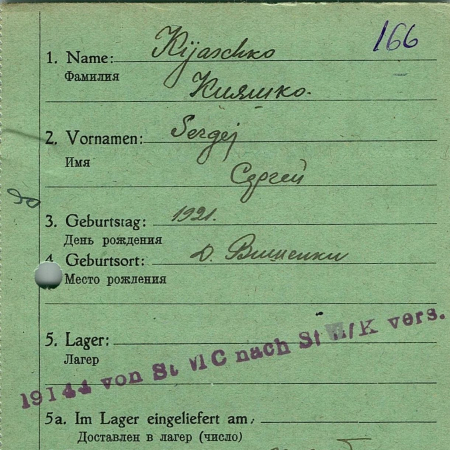 166
1. Name: Kijaschko
Фамилия Кияшко.
2. Vornamen: Sergej
Имя Сергей
3. Geburtstag: 1921.
День рождения
4. Geburtsort: д. Вишенки
Место рождения
5. Lager:
Лагер
von St VI C nach St /K vers.
5a. Im Lager eingeliefert am
Доставлен в лагер (число)